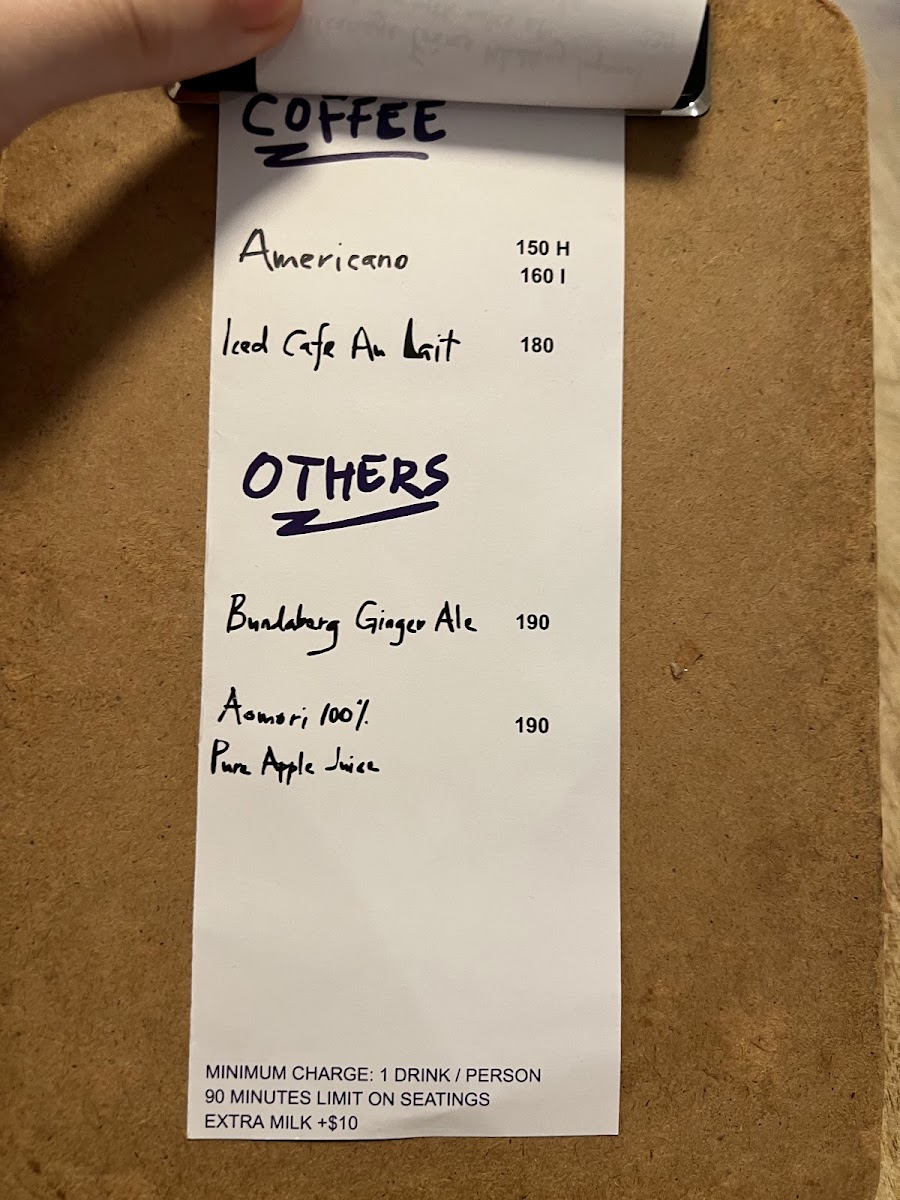 COFFEE
Americano 150 H
160 I
Iced Cafe Au Lait 180
OTHERS
Bundaberg Ginger Ale 190
Aomori 100%
Pure Apple Juice 190
MINIMUM CHARGE: 1 DRINK / PERSON
90 MINUTES LIMIT ON SEATINGS
EXTRA MILK +$10